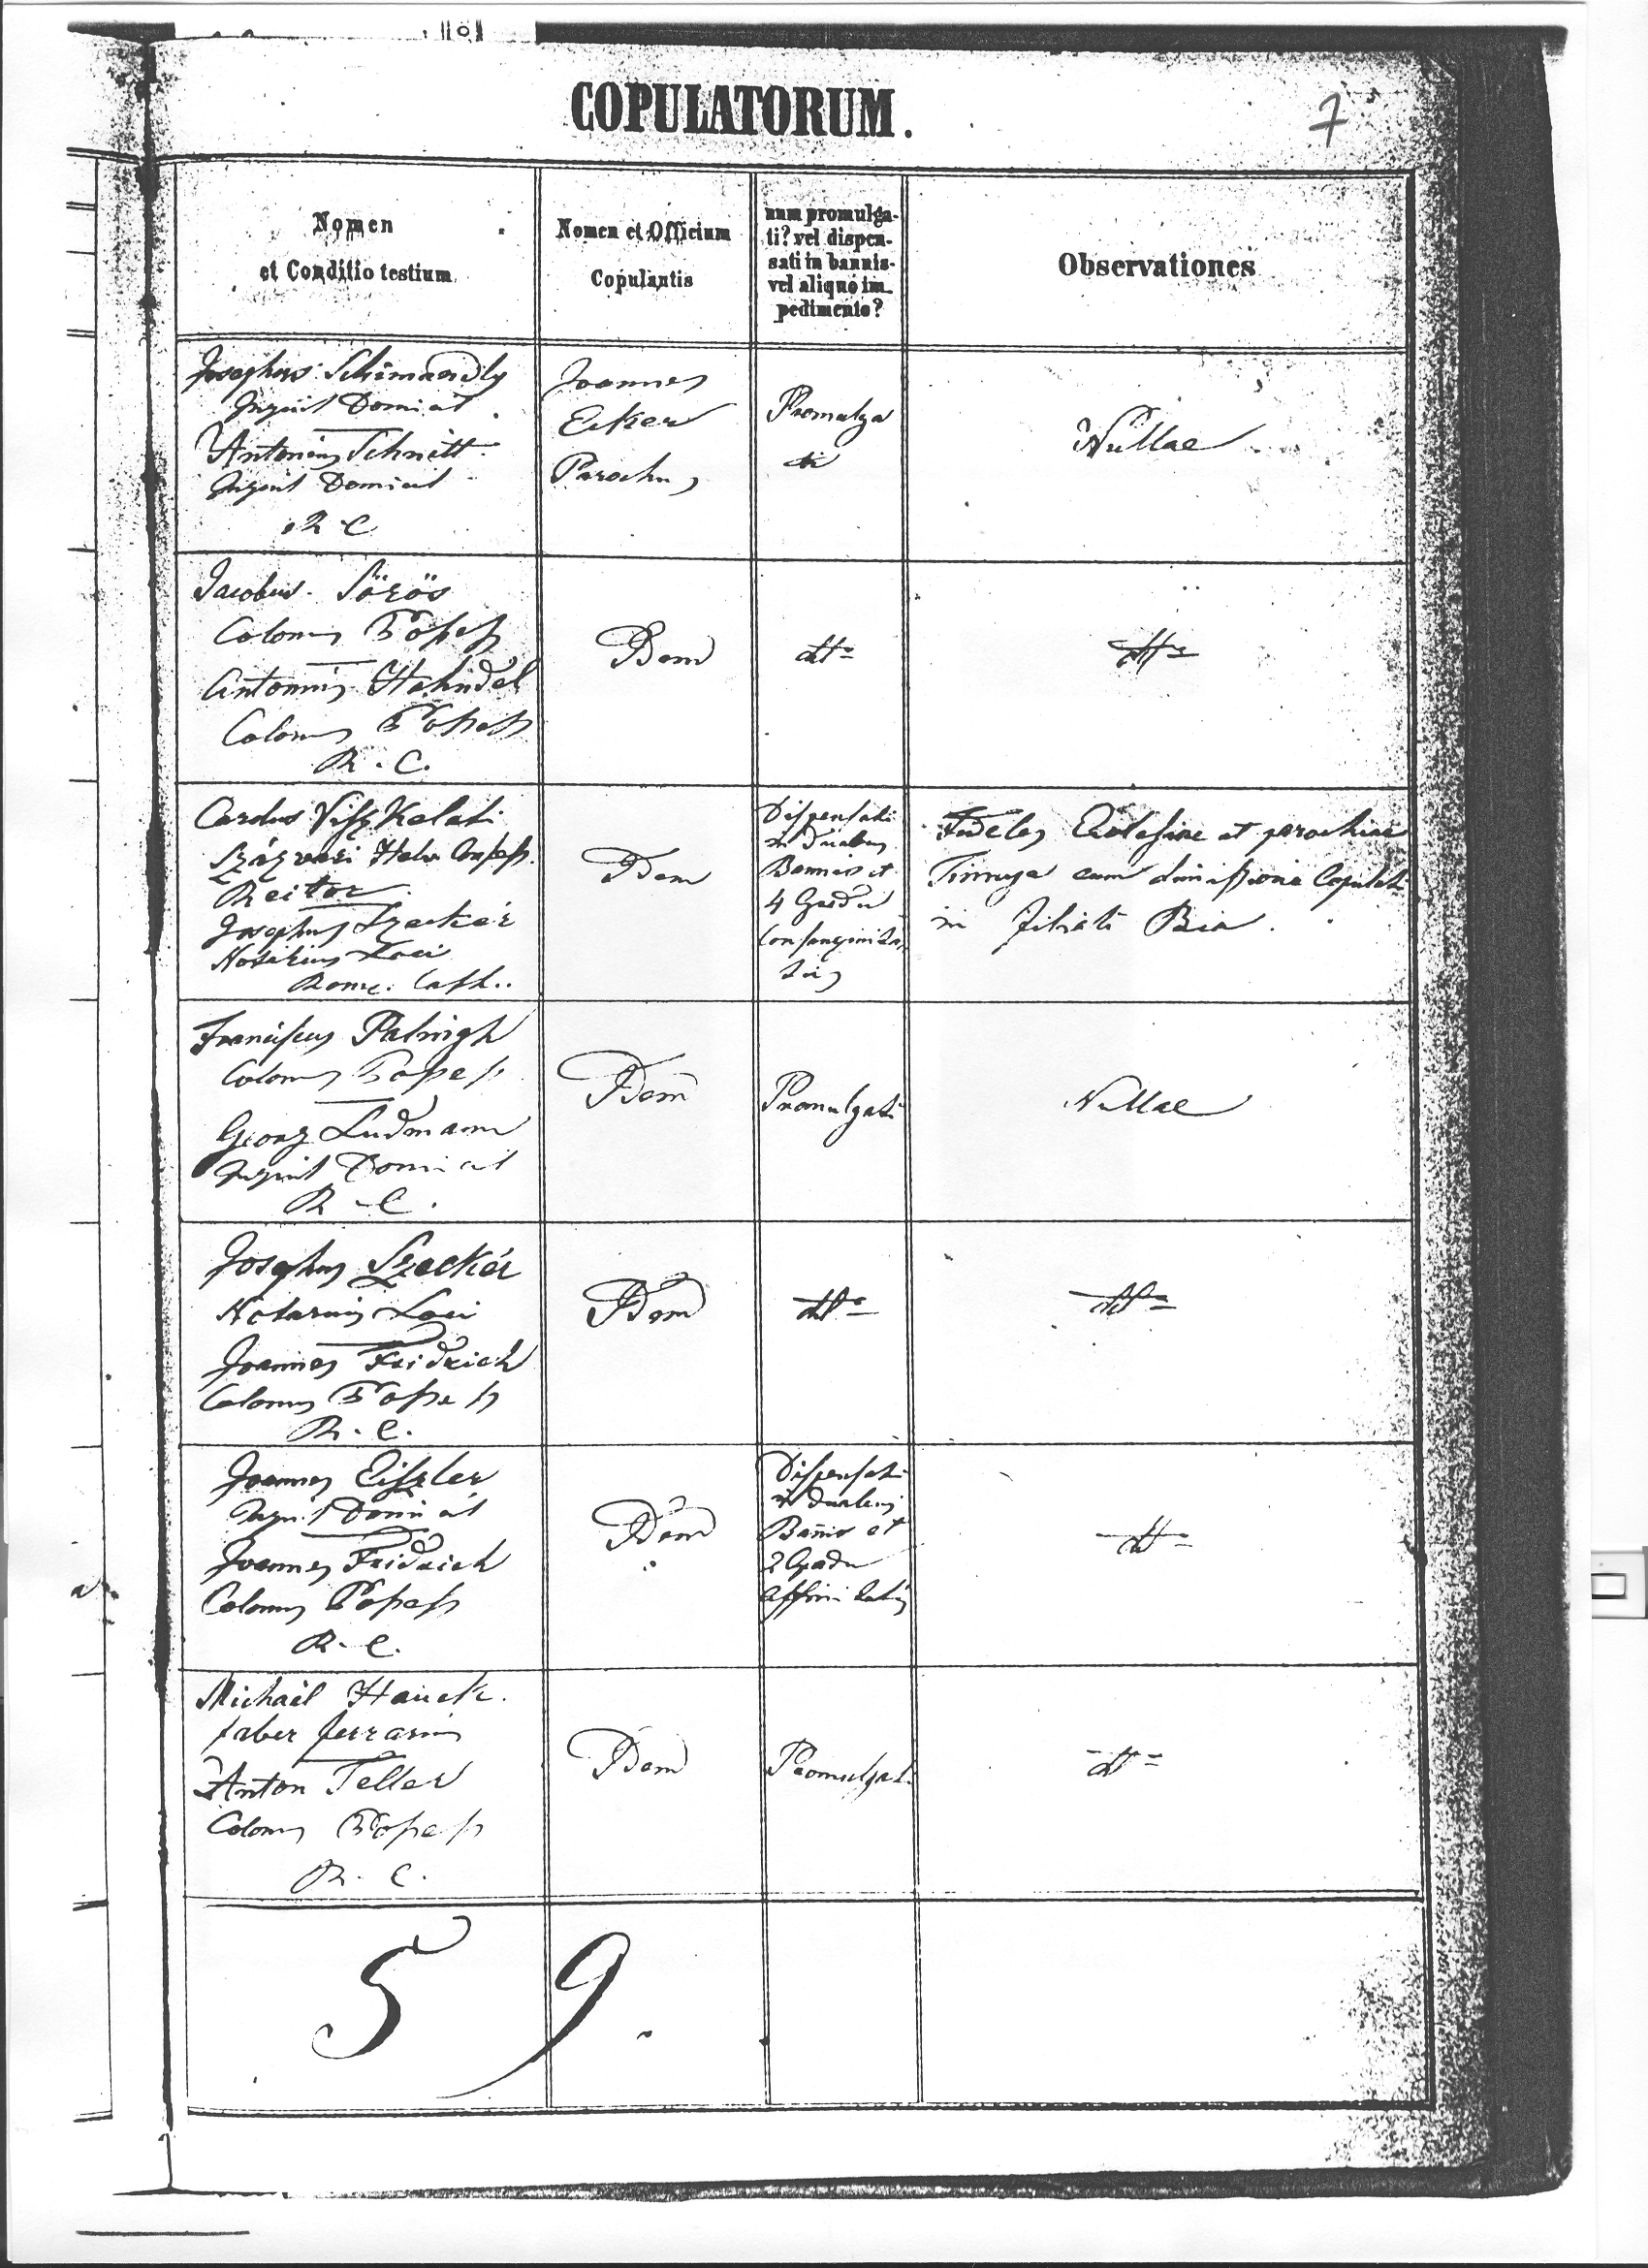 COPULATORUM.
7
Nomen
et Conditio testium
Nomen et Officium
Copulantis
num promulga-
ti? vel dispen-
sati in bannis-
vel aliquo im-
pedimento?
Observationes
Josephus
Inquil Domicil
Antonius Schnitt
Inquil Domicil
R C
Joannes
Ecker
Parochus
Promulga
ti
Nullae
Jacobus Sörös
Colonus
Antonius Hahndel
Colonus
R. C.
Idem
dtto
dtto
Carolus
Helv
Rector
Josephus Szecker
Notarius Loci
Rom. Cath.
Idem
Dispensati
in duabus
Bannis et
4 Gradu
Consanguinita
tis
Fideles Ecclesiae et parochiae
Tinnye cum dimissione Copulati
in filiali Bia.
Franciscus
Colonus
Georg Ludmann
Inquil Domicil
R. C.
Idem
Promulgati
Nullae
Josephus Szecker
Notarius Loci
Joannes Fridrich
Colonus
R. C.
Idem
dtto
dtto
Joannes Eiszler
Inquil Domicil
Joannes Fridrich
Colonus
R. C.
Idem
Dispensati
in duabus
Bannis et
2 Gradu
affinitatis
dtto
Michaël Hauck.
faber ferrarius
Anton Teller
Colonus
R. C.
Idem
Promulgati
dtto
59.